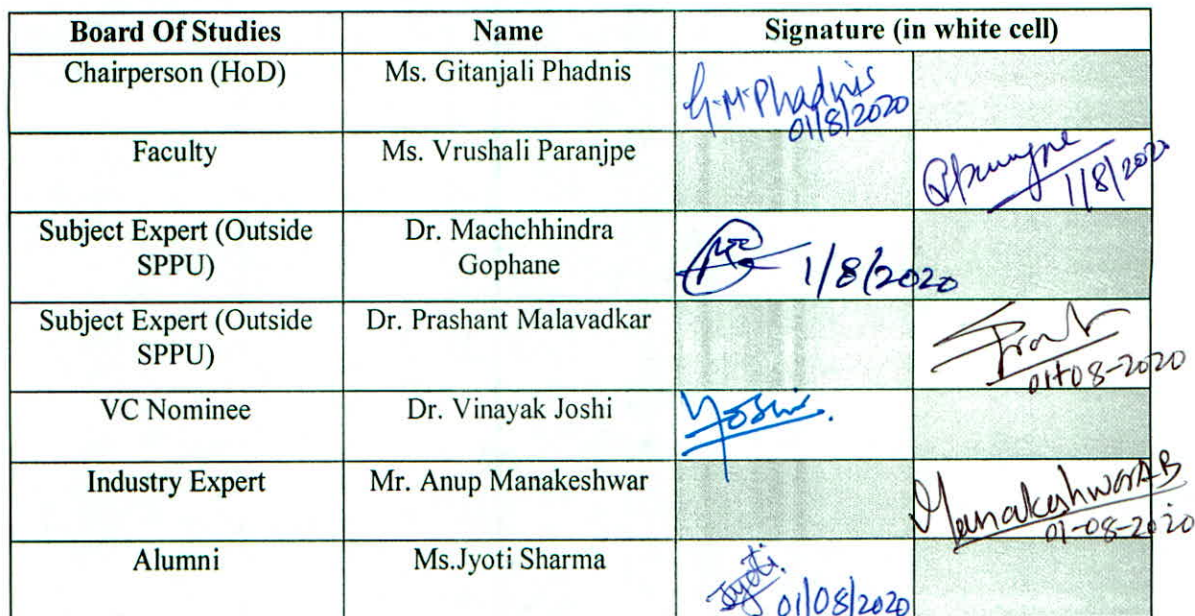 Board Of Studies Name Signature (in white cell)
Chairperson (HoD) Ms. Gitanjali Phadnis G.M.Phadnis
01/8/2020
Faculty Ms. Vrushali Paranjpe
1/8/2020
Subject Expert (Outside SPPU) Dr. Machchhindra Gophane 1/8/2020
Subject Expert (Outside SPPU) Dr. Prashant Malavadkar
01-08-2020
VC Nominee Dr. Vinayak Joshi Joshi.
Industry Expert Mr. Anup Manakeshwar ManakeshwarAB
01-08-2020
Alumni Ms.Jyoti Sharma Jyoti.
01/08/2020